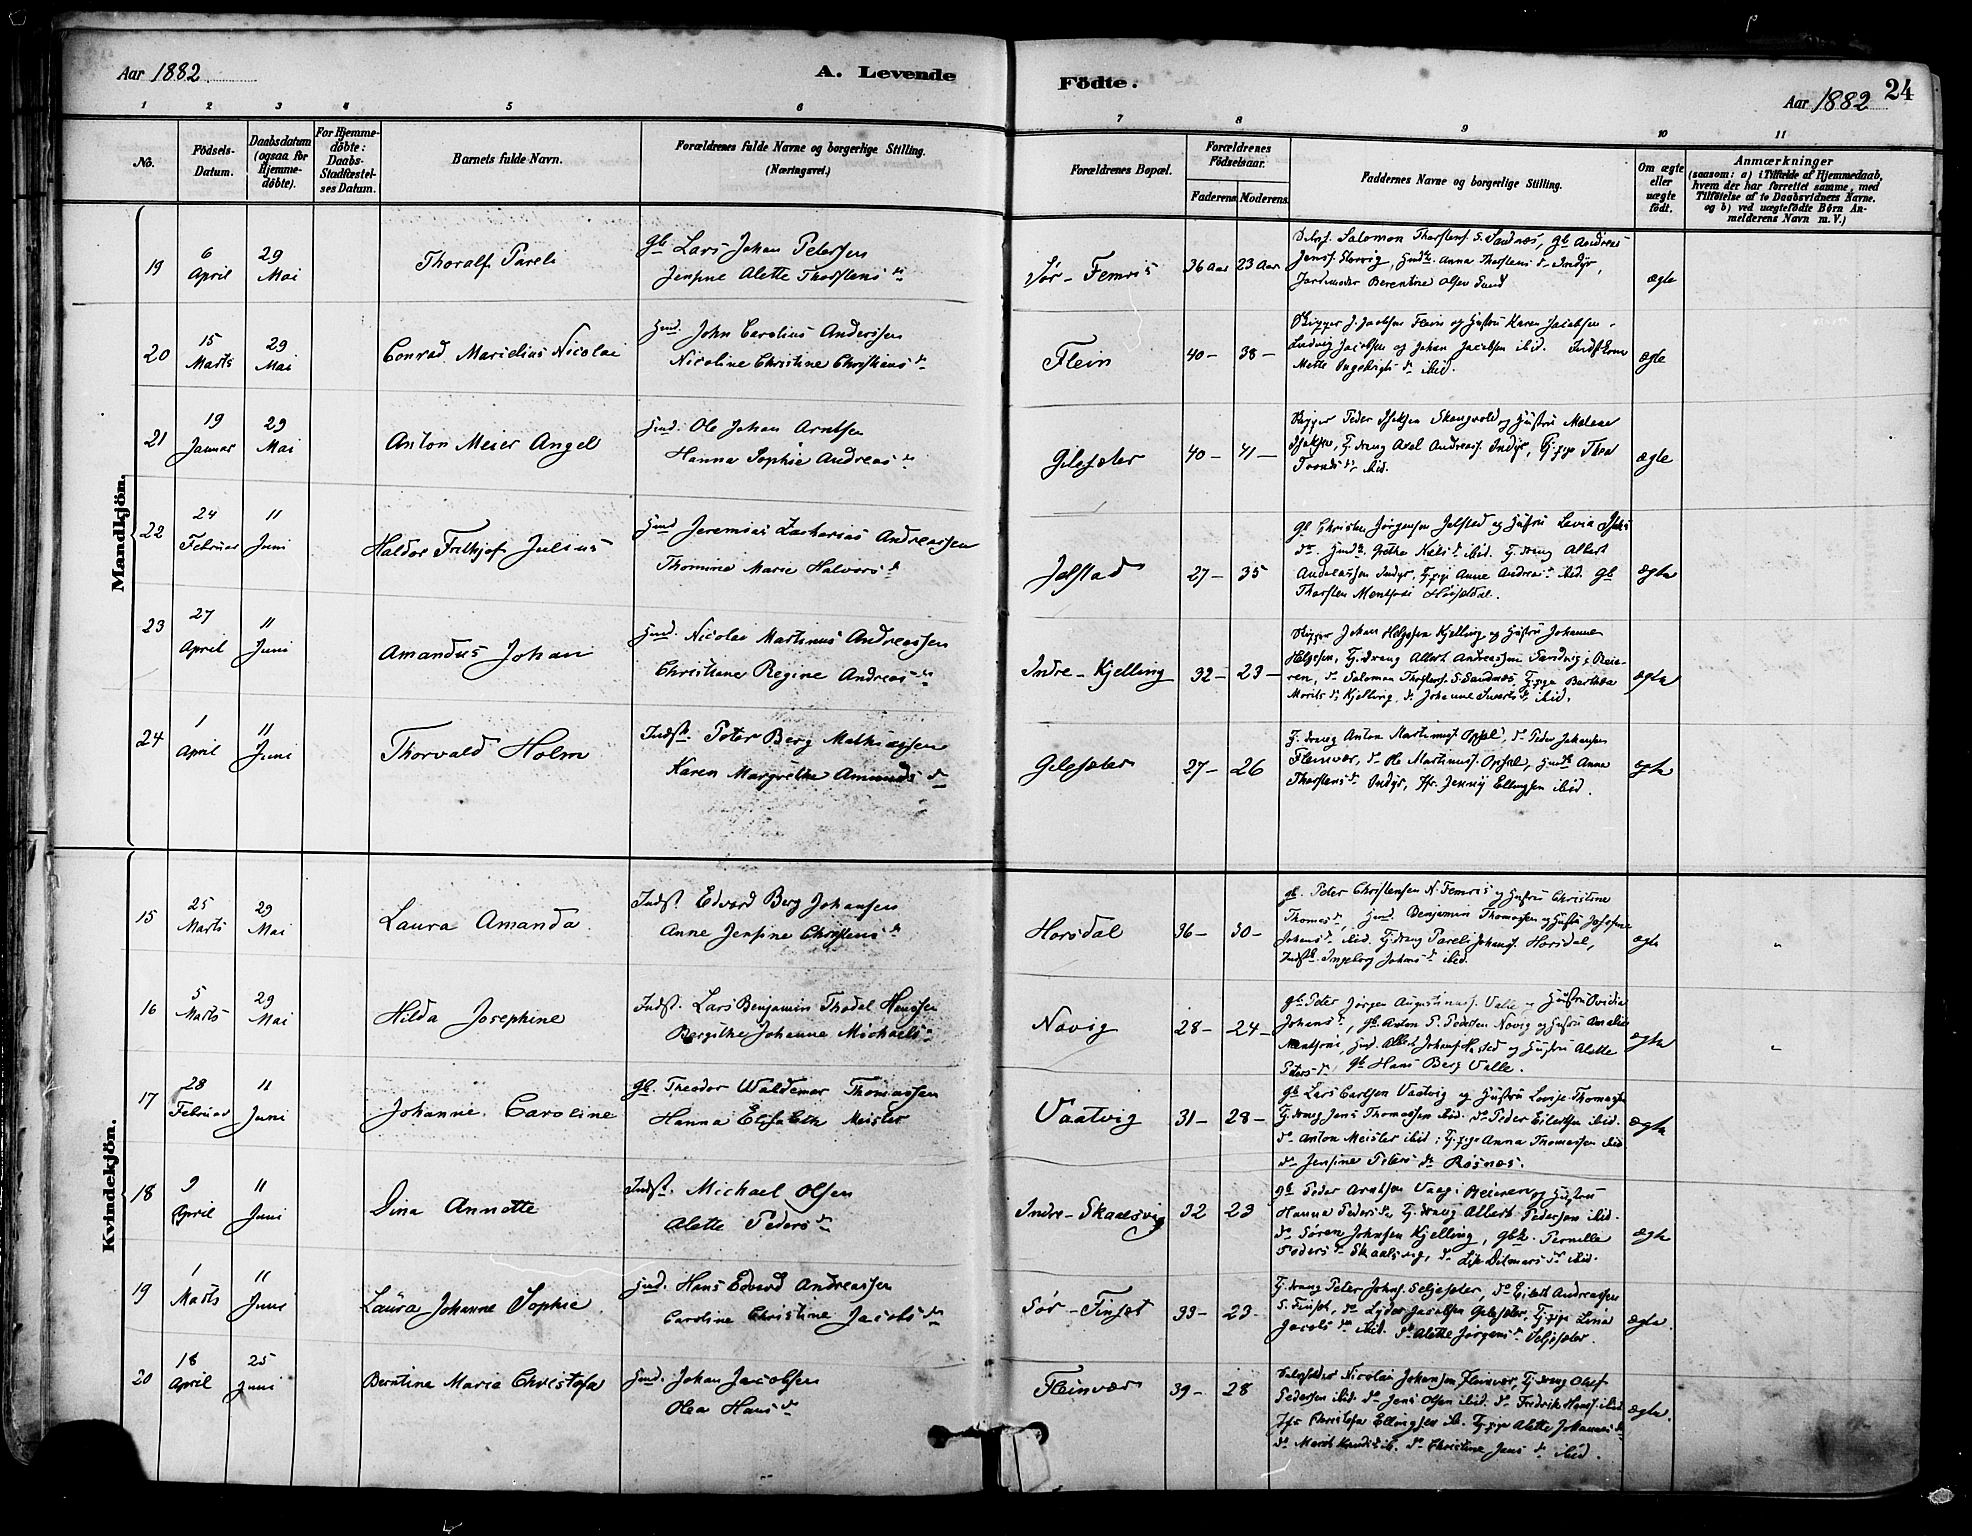 Aar 1882
A. Levende
Fødte.
Aar 1882
24
1 2 3 4 5 6 7 8 9 10 11
No.
Fødsels-Datum.
Daabsdatum (ogsaa for Hjemmedøbte).
For Hjemmedøbte: Daabs-Stadfæstelses Datum.
Barnets fulde Navn.
Forældrenes fulde Navne og borgerlige Stilling. (Næringsvei.)
Forældrenes Bopæl.
Forældrenes Fødselsaar.
Faderens Moderens
Faddernes Navne og borgerlige Stilling.
Om ægte eller uægte født.
Anmærkninger
(saasom: a) i Tilfælde af Hjemmedaab,
hvem der har forrettet samme, med
Tilføielse af to Daabsvidners Navne.
og b) ved uægtefødte Børn An-
melderens Navn m. V.)
Mandkjön.
19 6 April 29 Mai Thoralf Pareli
Gb Lars Johan Petersen
Jensine Alette Thorstensdr
Sør-Femris 36 Aar 23 Aar
Salomon Thorstens. S. Sandnæs, Gb Andreas
Jens. , Anna Thorstens dr Indyr,
Jordmoder Berentine Olsen Sund
ægte
20 15 Marts 29 Mai Conrad Marselius Nicolai
Hmd. John Carolius Anderssen
Nicoline Christine Christiansdr
Flein 40 - 38 -
Skipper J. Jacobsen Flein og Hustru Karen Jacobsen.
Ludvig Jacobsen og Johan Jacobsen ibid.
Mette Ingebrigts dr ibid.
ægte
21 19 Januar 29 Mai Anton Meier Angel
Hmd. Ole Johan Arntsen
Hanna Sophie Andreasdr
Gilesæter 40 - 41 -
Skipper Peder og Hustru
Tj. dreng Axel Andreass. Indyr, Tj. pige Thea
ibid.
ægte
22 24 Februar 11 Juni Haldor Frithjof Julius
Hmd Jeremias Zacharias Andreassen
Thomine Marie Halvorsdr
Jelstad 27 - 35
Gb Christen Jørgensen Jelstad og Hustru Levia
dr. Grethe Nils dr ibid. Tj. dreng Albert
Andreassen Indyr, Tj. pige Anne Andreasdr ibid. Gb
Thorsten
ægte
23 27 April 11 Juni Amandus Johan
Hmd. Nicolai Martinus Andreassen
Christiane Regine Andreasdr
Indre-Kjelling 32 - 23 -
Skipper Johan Helgesen Kjelling og Hustru Johanne
Helgesen, Tj. dreng Albert Andreassen Sandvig i Beie-
ren, do Salomon Thorstens. S. Sandnæs, Tj. pige Berthea
Morits dr Kjelling, do Johanne Iversdr ibid.
ægte
24 1 April 11 Juni Thorvald Holm
Indst. Peter Berg Mathiassen
Karen Margrethe Amunds dr
Gilesæter 27 - 26
Tj. dreng Anton Martinus. Opsal, do Peder Johansen
Fleinvær, do Ole Martinus. Opsal, Anna
Thorstens dr Indyr, Jfr. Jenny Ellingsen ibid.
ægte
Kvindekjön.
15 25 Marts 29 Mai Laura Amanda
Indst. Edvard Berg Johansen
Anne Jensine Christensdr
Horsdal 36 - 30 -
gb. Peter Christensen N. Femris og Hustru Christine
Thomasdr, Hmd. Benjamin Thomassen og Hustru
Johansdr ibid. Tj. dreng Pareli Johans. Horsdal,
Indst. Ingeborg Johansdr ibid.
ægte "
16 5 Marts 29 Mai Hilda Josephine
Indst. Lars Benjamin Thodal Hanssen
Bergithe Johanne Michaelsdr
Novig 28 - 24 -
gb Peter Jørgen Augustinuss. Valle og Hustru Ovidia
Johansdr, Gb. Anton P. Pedersen Novig og Hustru Amalie
Hmd. Albert Johans. og Hustru Alette
Petersdr. Gb Hans Berg Valle.
ægte "
17 28 Februar 11 Juni Johanne Caroline
Gb. Theodor Waldemar Thomassen
Hanna Elisabeth Meisler
Vaatvig 31 - 28 -
Gb Lars Carlsen Vaatvig og Hustru Lovise Thomasdr
Tj. dreng Jens Thomassen ibid. do Peder Eilertsen ibid.
do Anton Meisler ibid: Tj. pige Anna Thomassen ibid
do Jensine Peters dr Røsnæs.
ægte
18 9 April 11 Juni Dina Annette
Indst. Michael Olsen
Alette Pedersdr
Indre-Skaalsvig 32 23
Gb Peder Arntsen Vaag i Beieren og Hustru
Hanna Peders dr Tj. dreng Albert Pedersen ibid.
do Søren Johnsen Kjelling, Pernille
Peders dr Skaalsvig, do Ditmarsdr ibid.
ægte
19 1 Marts 11 Juni Laura Johanne Sophie
Hmd. Hans Edvard Andreassen
Caroline Christine Jacobs dr
Sør-Finset 33 - 23 -
Tj. dreng Peter Johns. Seljesæter, do Eilert Andreassen
S. Finset, do Lyder Jacobsen Gilesæter, Tj. pige Lina
Jacobs dr ibid. do Alette Jørgensdr Seljesæter.
ægte.
20 18 April 25 Juni Berntine Marie Christofa
Hmd. Johan Jacobsen
Olea Hansdr
Fleinvær 39 - 28
Nicolai Johansen Fleinvær, Tj. dreng Oluf
Pedersen ibid. do Jens Olsen ibid. do Fredrik Hanss. ibid
Jfr Christofa Ellingsen ib. Tj. pige Alette Johannesdr
do Marit ib. do Christine Jens dr ibid.
ægte.